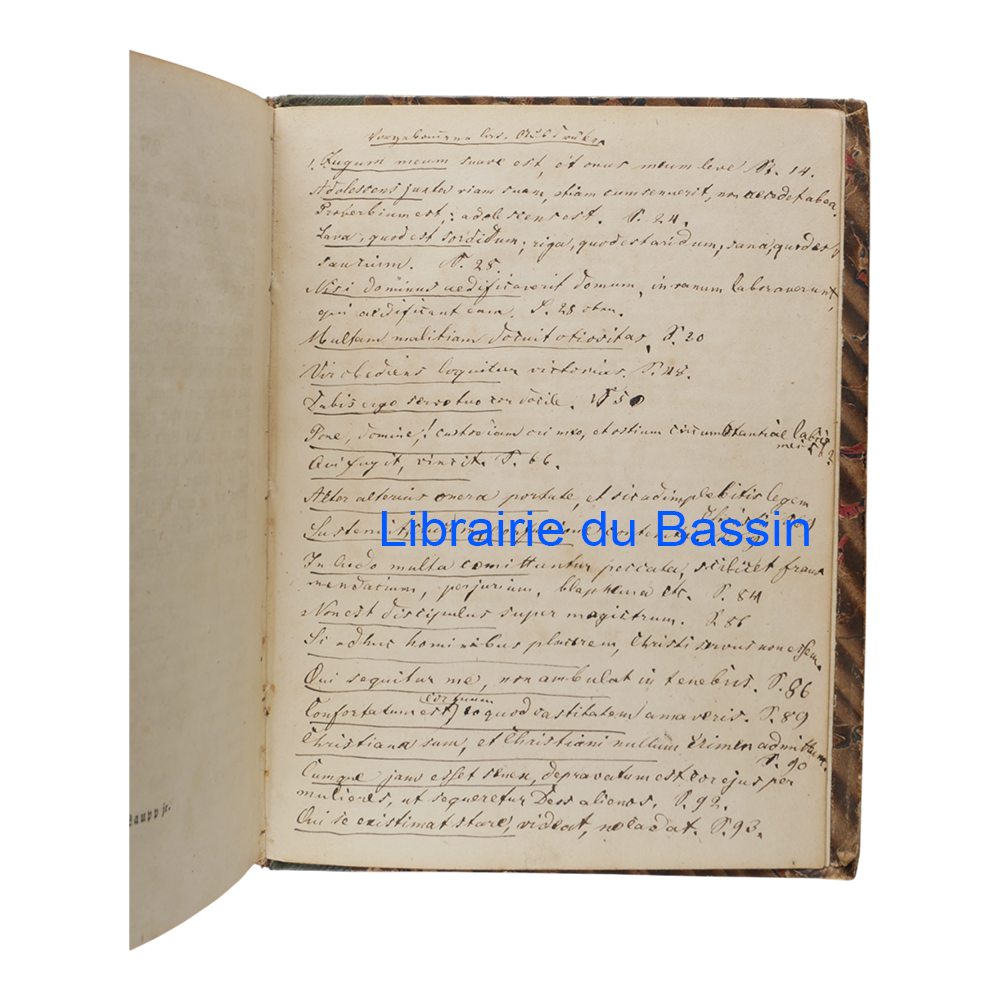 1. Jugum meum suave est, et onus meum leve S. 14.
Adolescens juxta viam suam, etiam cum senuerit, non recedet ab ea.
Proverbium est, : adolescens est. S. 24.
Lava, quod est sordidum, riga, quod est aridum, sana, quod est
saucium. S. 28.
Nisi dominus aedificaverit domum, in vanum laboraverunt,
qui aedificant eam. S. 28 oben.
Multam malitiam docuit otiositas. S. 20
Vir obediens loquitur victorias. S. 48.
Dabis ergo servo tuo cor docile. S. 50
Pone, domine! custodiam ori meo, et ostium circumstantiae labiis
meis S.
Qui fugit, vincit. S. 66.
Alter alterius onera portate, et sic adimplebitis legem
Christi S.
In ludo multa comittuntur peccata, scilicet fraus
mendacium, perjurium, blasphemia etc. S. 84
Non est discipulus super magistrum. S. 86
Si adhuc hominibus placerem, Christi servus non essem.
Qui sequitur me, non ambulat in tenebris. S. 86
cor tuum
Confortatum est eo quod castitatem amaveris. S. 89
Christiana sum, et Christiani nullum crimen admittunt.
S. 90
Cumque jam esset senex, depravatum est cor ejus per
mulieres, ut sequeretur Deos alienos. S. 92.
Qui se existimat stare, videat, ne cadat. S. 93.
Librairie du Bassin
Laupp jr.